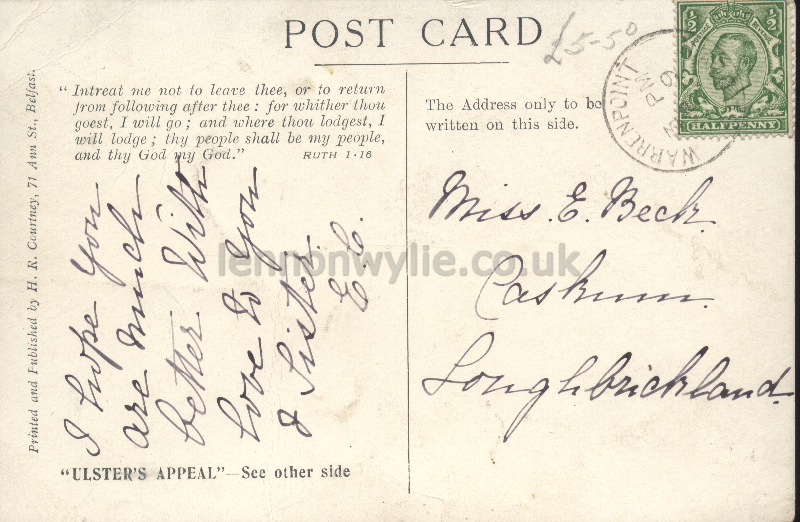 POST CARD
£5-50
"Intreat me not to leave thee, or to return
from following after thee: for whither thou
goest, I will go; and where thou lodgest, I
will lodge; thy people shall be my people,
and thy God my God."
RUTH 1·16
I hope you
are much
better with
love to you
& Sister.
E. C.
"ULSTER'S APPEAL"—See other side
Printed and Published by H. R. Courtney, 71 Ann St., Belfast.
The Address only to be
written on this side.
Miss. E. Beck.
Caskum.
Loughbrickland.
WARRENPOINT
PM
½ ½
HALFPENNY
lennonwylie.co.uk